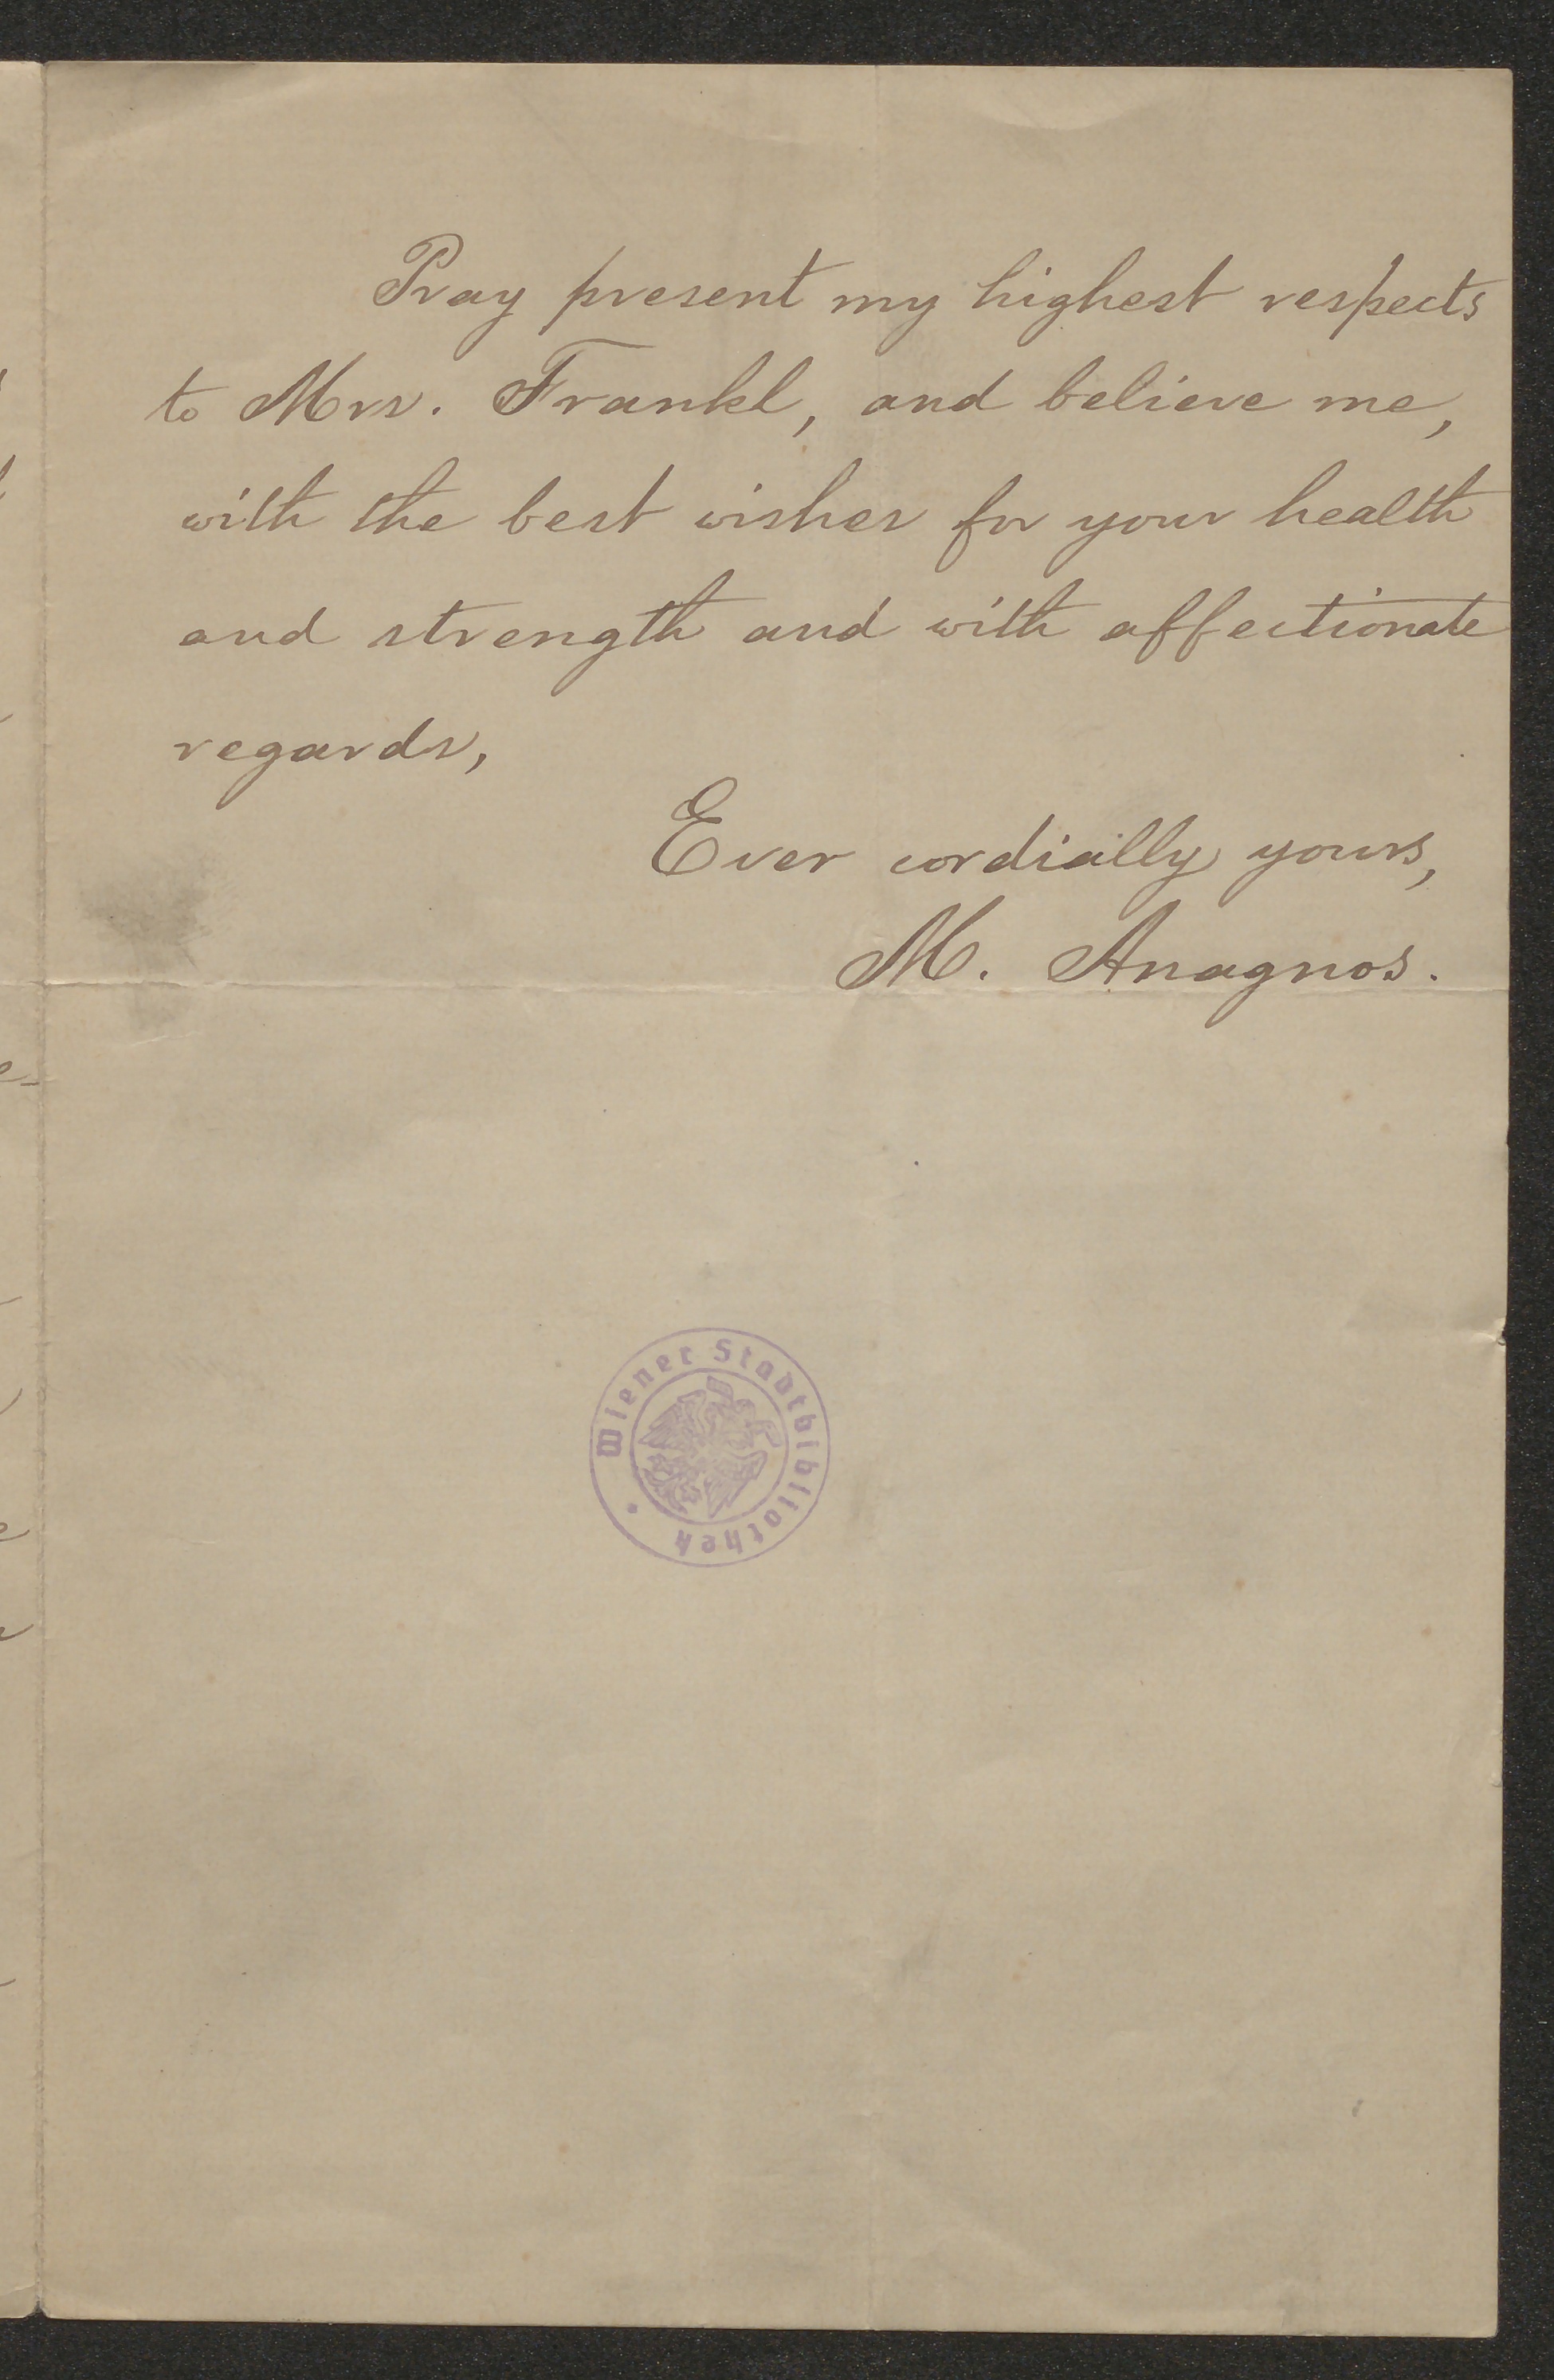 Pray present my highest respects
to Mrs. Frankl, and believe me,
with the best wishes for your health
and strength and with affectionate
regards,
Ever cordially yours,
M. Anagnos.
Wiener Stadtbibliothek